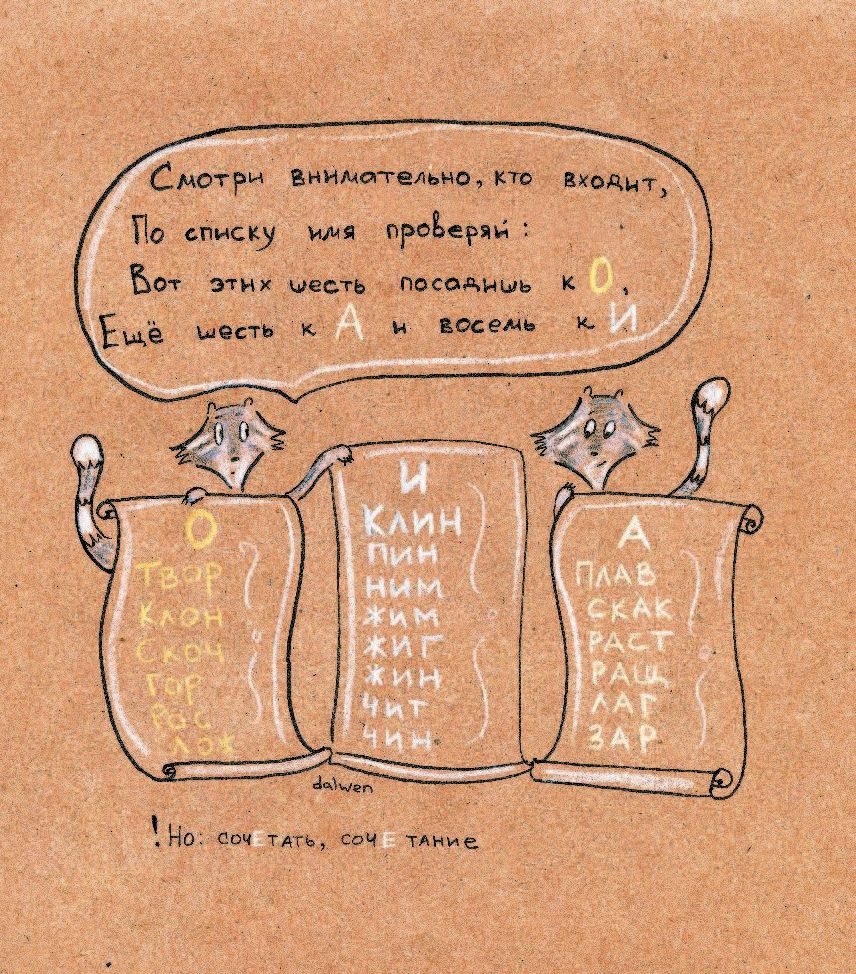 Смотри внимательно, кто входит,
По списку имя проверяй:
Вот этих шесть посадишь к О,
Ещё шесть к А и восемь к И
О
ТВОР
КЛОН
СКОЧ
ГОР
РОС
ЛОЖ
И
КЛИН
ПИН
НИМ
ЖИМ
ЖИГ
ЖИН
ЧИТ
ЧИН
А
ПЛАВ
СКАК
РАСТ
РАЩ
ЛАГ
ЗАР
dalwen
! Но: сочЕтать, сочЕтание